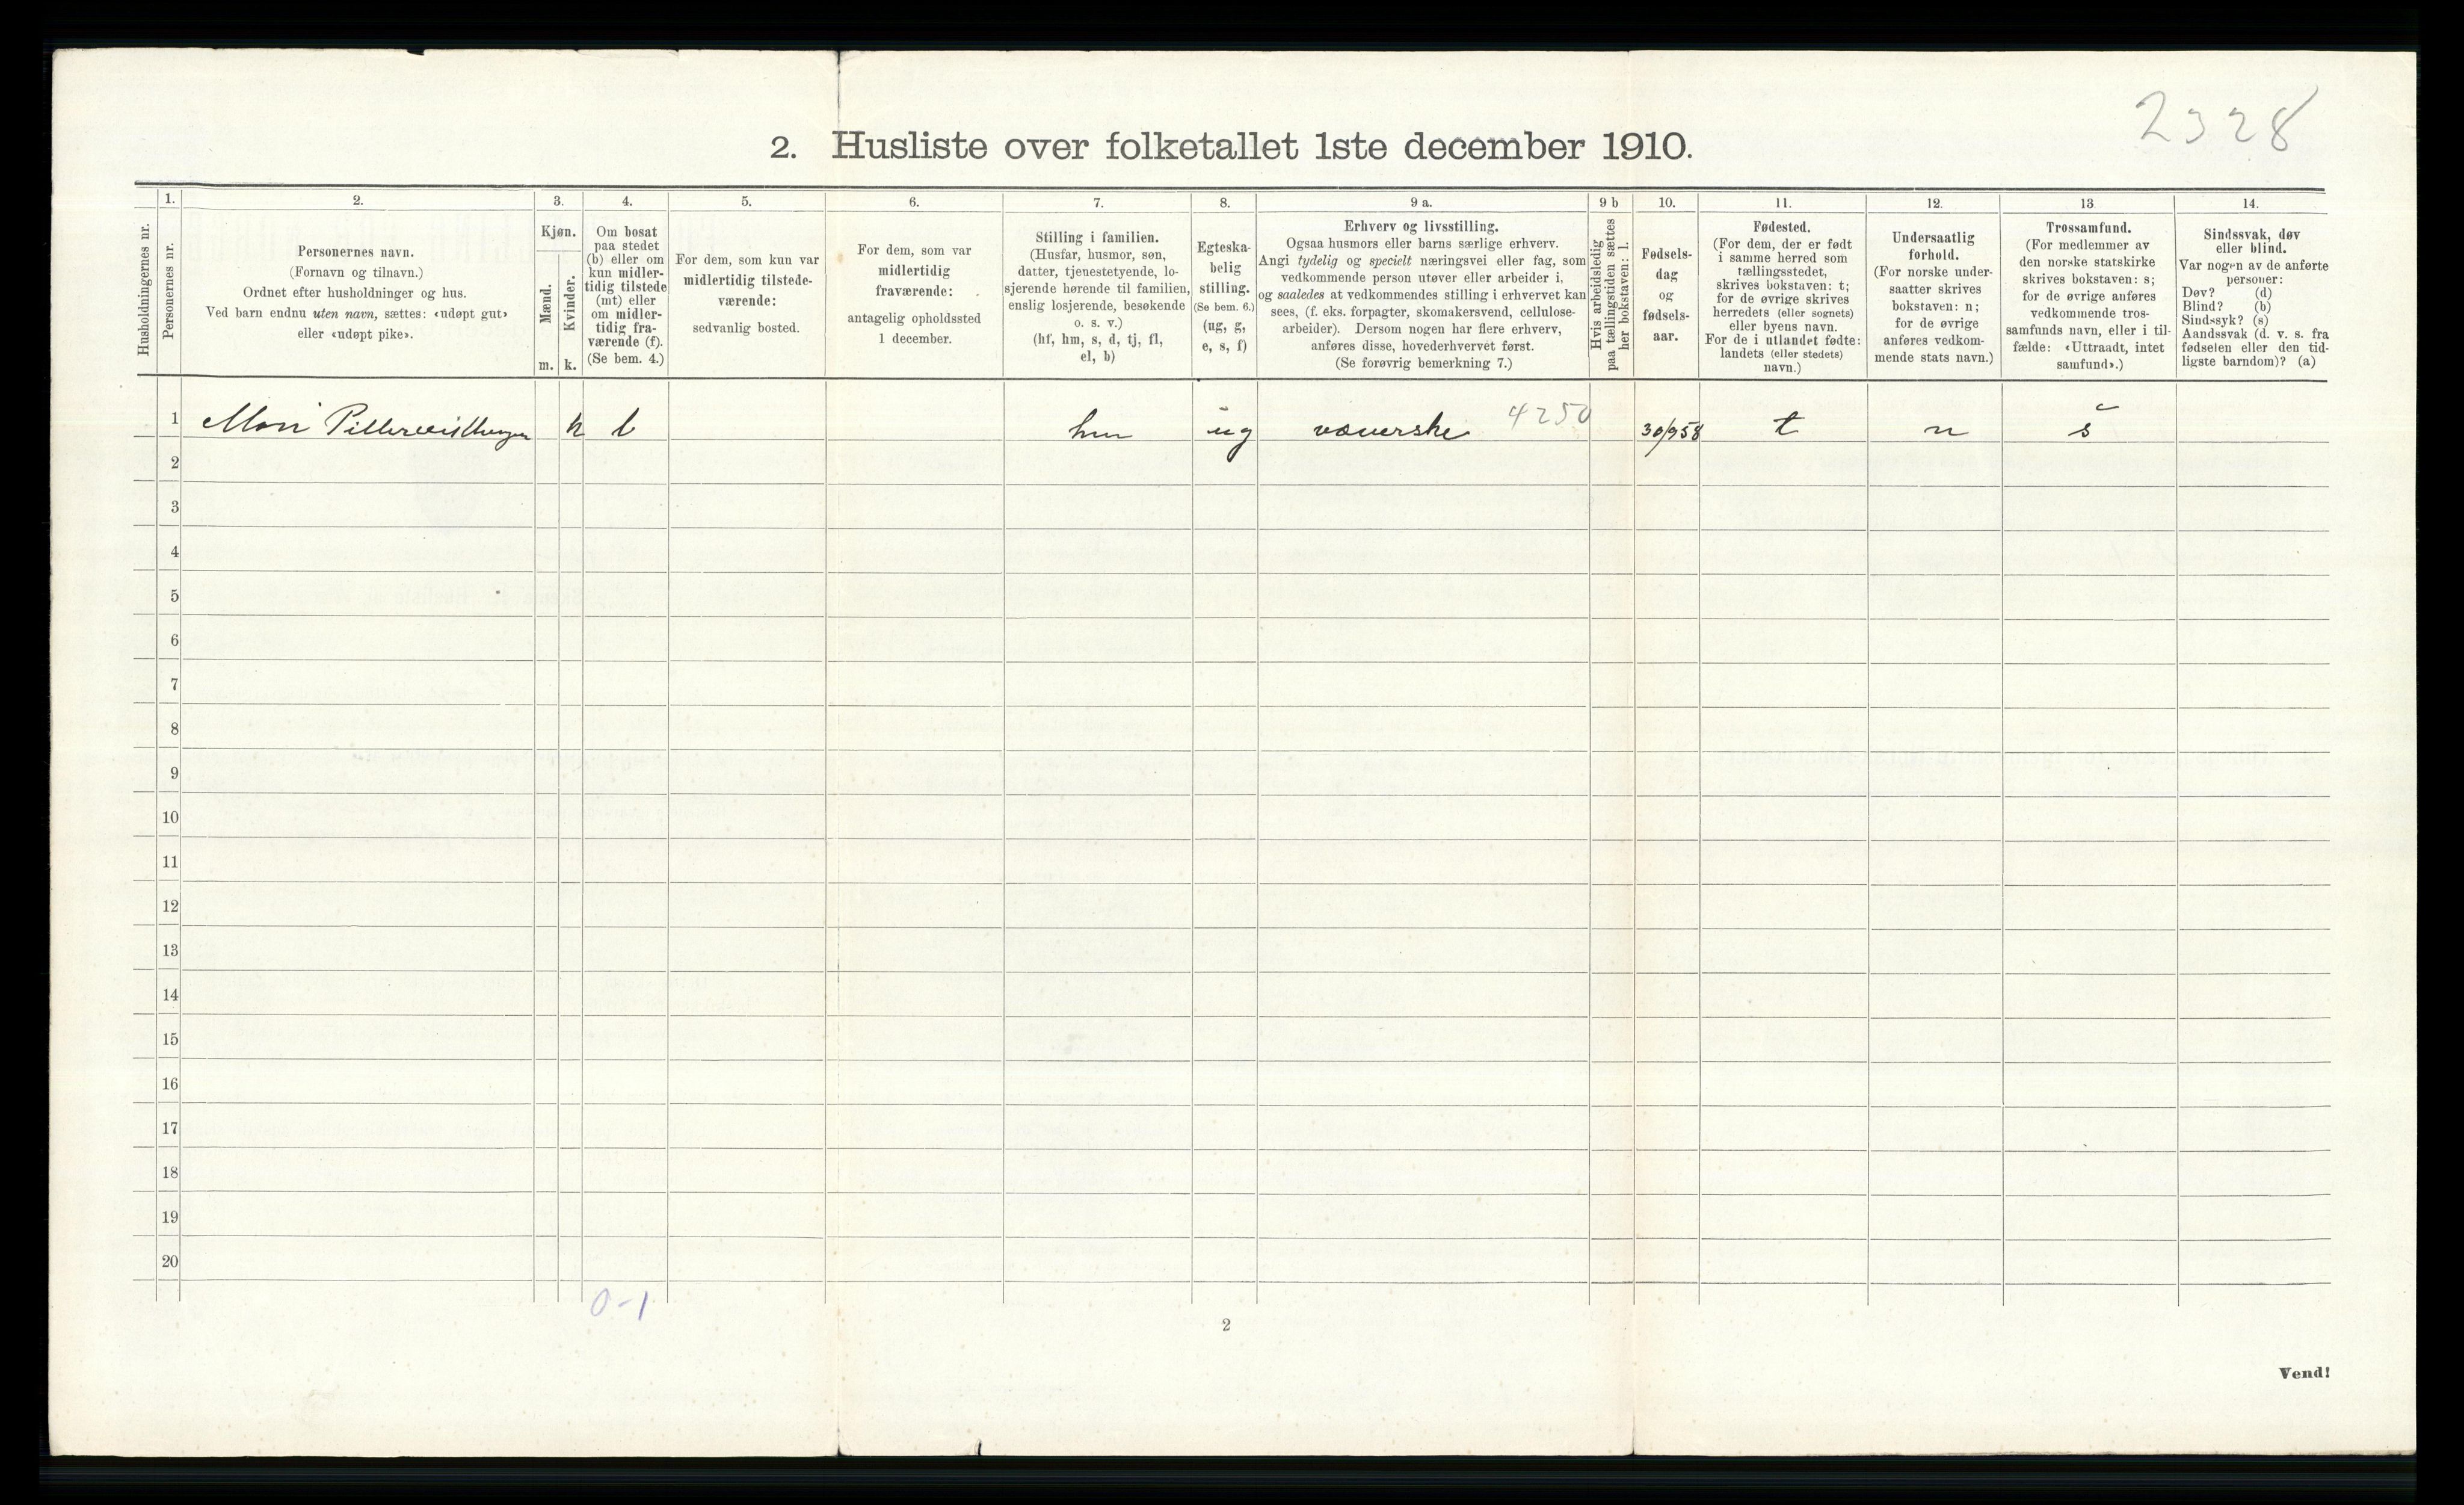 2328
2. Husliste over folketallet 1ste december 1910.
Husholdningernes nr.
1.
Personernes nr.
2.
Personernes navn.
(Fornavn og tilnavn.)
Ordnet efter husholdninger og hus.
Ved barn endnu uten navn, sættes: «udøpt gut»
eller «udøpt pike».
3.
Kjøn.
Mænd.
Kvinder.
m. k.
4.
Om bosat
paa stedet
(b) eller om
kun midler-
tidig tilstede
(mt) eller
om midler-
tidig fra-
værende (f).
(Se bem. 4.)
5.
For dem, som kun var
midlertidig tilstede-
værende:
sedvanlig bosted.
6.
For dem, som var
midlertidig
fraværende:
antagelig opholdssted
1 december.
7.
Stilling i familien.
(Husfar, husmor, søn,
datter, tjenestetyende, lo-
sjerende hørende til familien,
enslig losjerende, besøkende
o. s. v.)
(hf, hm, s, d, tj, fl,
el, b)
8.
Egteska-
belig
stilling.
(Se bem. 6.)
(ug, g,
e, s, f)
9 a.
Erhverv og livsstilling.
Ogsaa husmors eller barns særlige erhverv.
Angi tydelig og specielt næringsvei eller fag, som
vedkommende person utøver eller arbeider i,
og saaledes at vedkommendes stilling i erhvervet kan
sees, (f. eks. forpagter, skomakersvend, cellulose-
arbeider). Dersom nogen har flere erhverv,
anføres disse, hovederhvervet først.
(Se forøvrig bemerkning 7.)
9 b
Hvis arbeidsledig
paa tællingstiden sættes
her bokstaven: l.
10.
Fødsels-
dag
og
fødsels-
aar.
11.
Fødested.
(For dem, der er født
i samme herred som
tællingsstedet,
skrives bokstaven: t;
for de øvrige skrives
herredets (eller sognets)
eller byens navn.
For de i utlandet fødte:
landets (eller stedets)
navn.)
12.
Undersaatlig
forhold.
(For norske under-
saatter skrives
bokstaven: n;
for de øvrige
anføres vedkom-
mende stats navn.)
13
Trossamfund.
(For medlemmer av
den norske statskirke
skrives bokstaven: s;
for de øvrige anføres
vedkommende tros-
samfunds navn, eller i til-
fælde: «Uttraadt, intet
samfund».)
14.
Sindssvak, døv
eller blind.
Var nogen av de anførte
personer:
Døv? (d)
Blind? (b)
Sindssyk? (s)
Aandssvak (d. v. s. fra
fødselen eller den tid-
ligste barndom)? (a)
1 Mari k b hm ug væverske 4250 30/9 58 t n s
2
3
4
5
6
7
8
9
10
11
12
13
14
15
16
17
18
19
20
0-1
2
Vend!